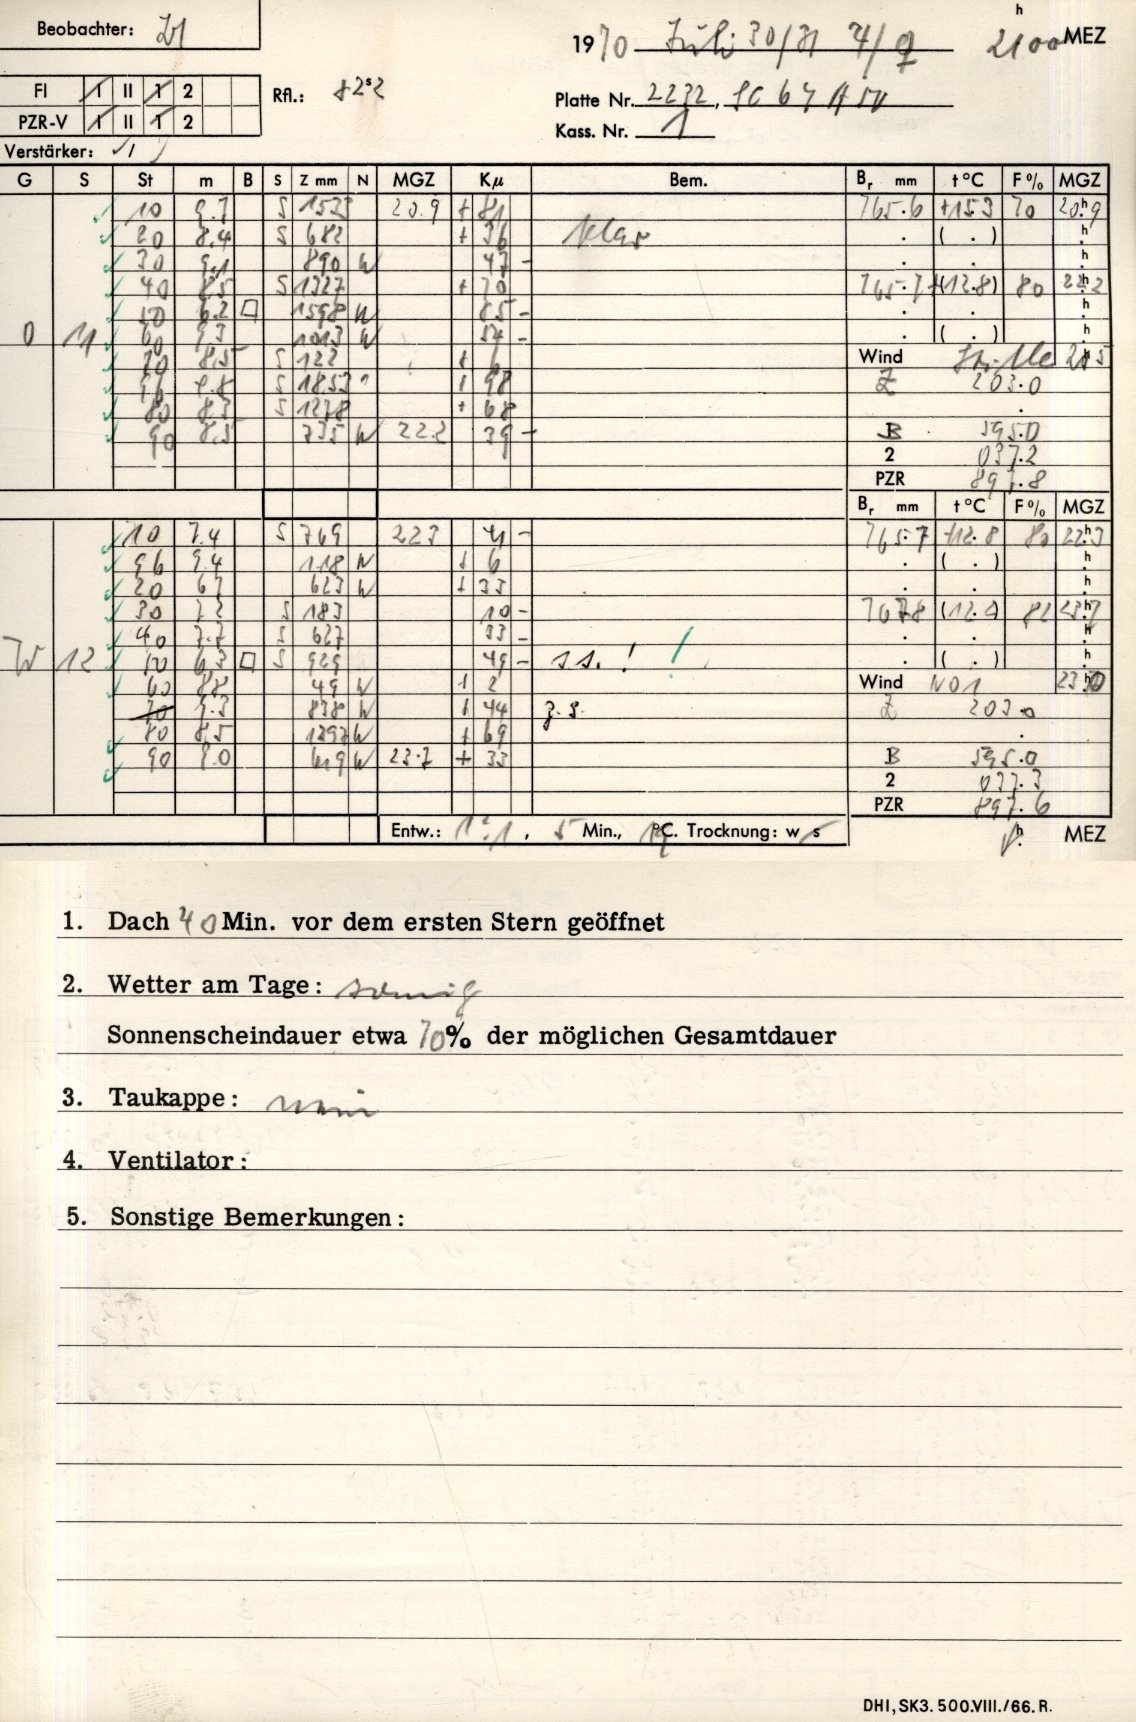 Beobachter:
1970 Juli 30/31 4/♀ 2100 MEZ
h
FI I II 1 2
PZR-V I II 1 2
Rfl.: 82s2
Platte Nr. 2232,
Kass. Nr. 1
Verstärker:
G S St m B S Z mm N MGZ Kμ Bem. Br mm t°C F% MGZ
10 9.7 S 1533 20.9 + 81 765.6 +15.3 70 20h9
20 8.4 S 682 + 36 klar . ( . ) h
30 9.1 890 W 47 - . . h
40 8.5 S 1327 + 70 765.7 +(12.8) 80 22h2
50 6.2 □ 1598 W 85 - . . h
O 11 60 9.3 1013 W 54 - . ( . ) h
70 8.5 S 122 + 6 Wind Stille 21h5
96 9.8 S 1853 + 98 Z 203.0
80 8.3 S 1278 + 68 .
90 8.5 735 W 22.2 39 - B 595.0
2 037.2
PZR 897.8
Br mm t°C F% MGZ
10 7.4 S 769 22.3 41 - 765.7 +12.8 80 22h3
96 9.4 118 W + 6 . ( . ) h
20 6.7 623 W + 33 . . h
30 7.2 S 183 10 - 767.8 (12.2) 82 23h7
40 7.7 S 627 33 - . . h
W 12 50 6.3 □ S 929 49 - s s. ! ! . ( . ) h
60 8.8 49 W + 2 Wind NO1 23h0
70 9.3 838 W + 44 z. s. Z 203.0
80 8.5 1297 W + 69 .
90 9.0 619 W 23.7 + 33 B 595.0
2 037.3
PZR 897.6
Entw.: 1:1, 5 Min., 19°C. Trocknung: w s h MEZ
1. Dach 40 Min. vor dem ersten Stern geöffnet
2. Wetter am Tage: sonnig
Sonnenscheindauer etwa 70% der möglichen Gesamtdauer
3. Taukappe: nein
4. Ventilator:
5. Sonstige Bemerkungen:
DHI, SK3. 500.VIII./66. R.